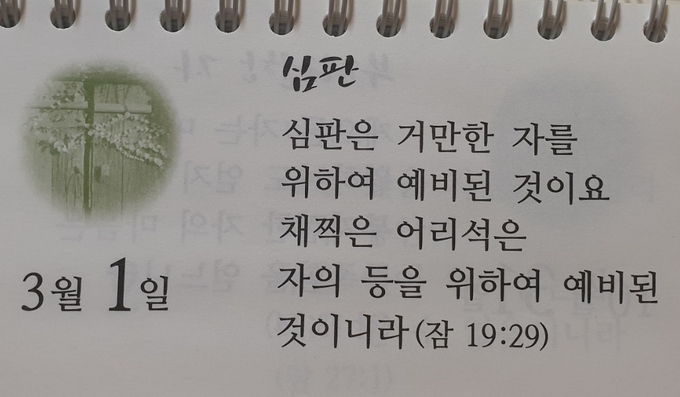 심판
심판은 거만한 자를
위하여 예비된 것이요
채찍은 어리석은
자의 등을 위하여 예비된
것이니라 (잠 19:29)
3월 1일